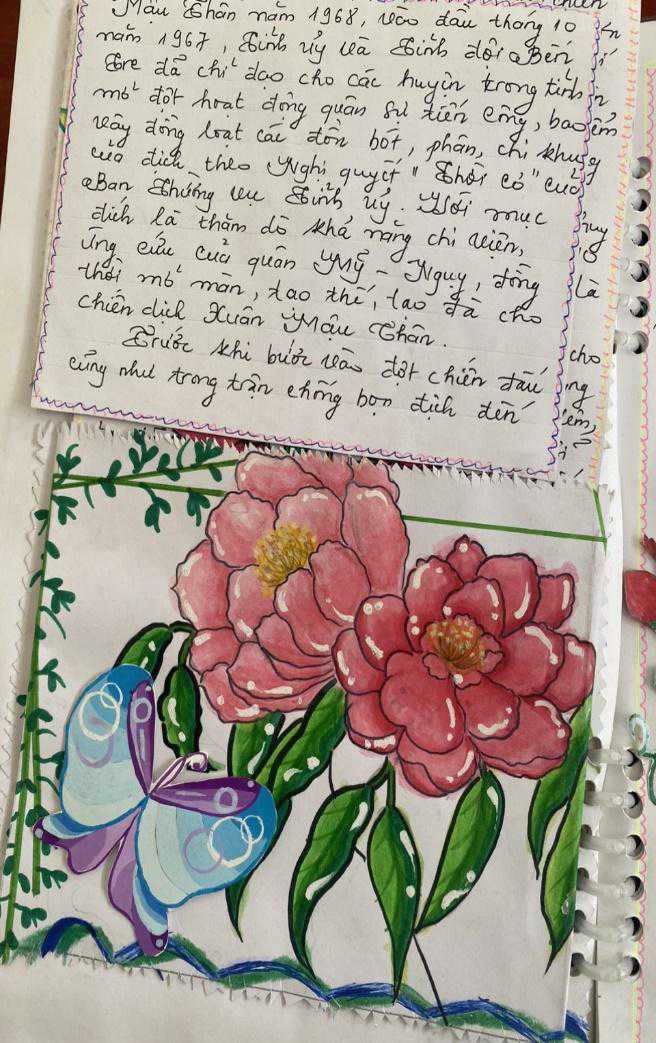 Mậu Thân năm 1968, vào đầu tháng 10
năm 1967, Tỉnh ủy và Tỉnh đội Bến
Tre đã chỉ đạo cho các huyện trong tỉnh
mở đợt hoạt động quân sự tiến công, bao
vây đồng loạt các đồn bót, phân, chi khung
của địch theo Nghị quyết " Thời cơ" của
Ban Thường vụ Tỉnh ủy. Với mục
đích là thăm dò khả năng chi viện,
ứng cứu của quân Mỹ - Ngụy, đồng
thời mở màn, tạo thế, tạo đà cho
chiến dịch Xuân Mậu Thân.
Trước khi bước vào đợt chiến đấu
cũng như trong trận chống bọn địch đến
huy
là
cho